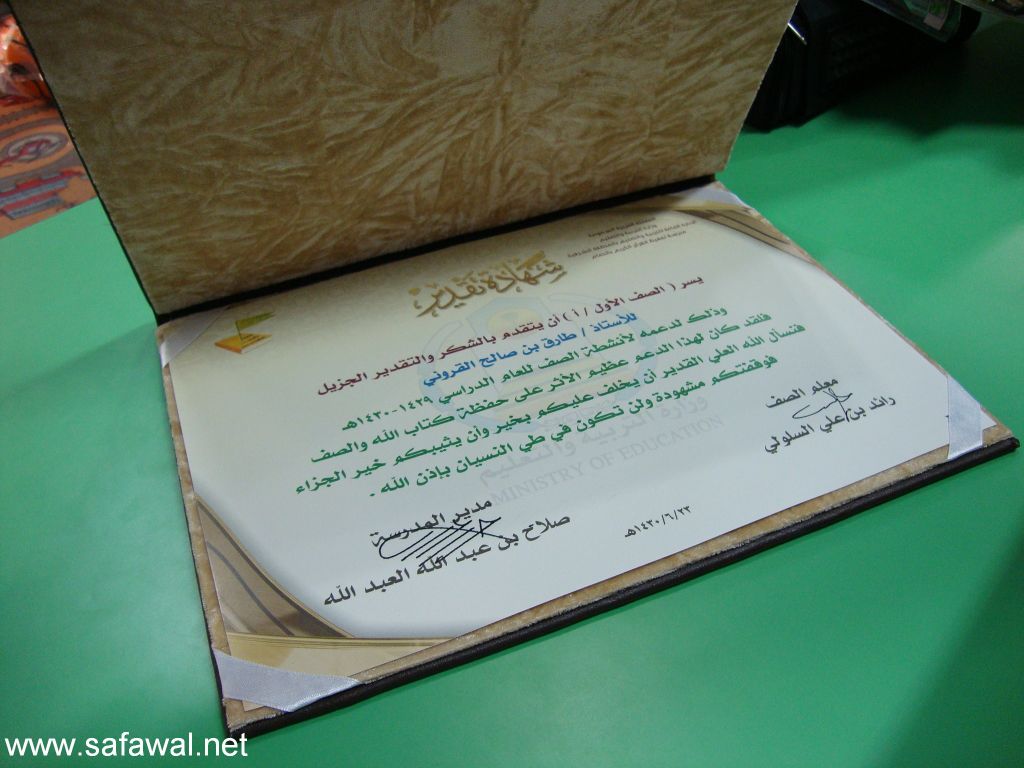 المملكة العربية السعودية
وزارة التربية والتعليم
الإدارة العامة للتربية والتعليم بالمنطقة الشرقية
مدرسة تحفيظ القرآن الكريم بالدمام
شهادة تقدير
يسر ( الصف الأول / أ ) أن يتقدم بالشكر والتقدير الجزيل
للأستاذ / طارق بن صالح القروني
وذلك لدعمه لأنشطة الصف للعام الدراسي ١٤٢٩-١٤٣٠هـ
فلقد كان لهذا الدعم عظيم الأثر على حفظة كتاب الله والصف
فنسأل الله العلي القدير أن يخلف عليكم بخير وأن يثيبكم خير الجزاء
فوقفتكم مشهودة ولن تكون في طي النسيان بإذن الله .
وزارة التربية والتعليم
MINISTRY OF EDUCATION
معلم الصف
رائد بن علي السلولي
مدير المدرسة
صلاح بن عبد الله العبد الله
١٤٣٠/٦/٢٣هـ
www.safawal.net